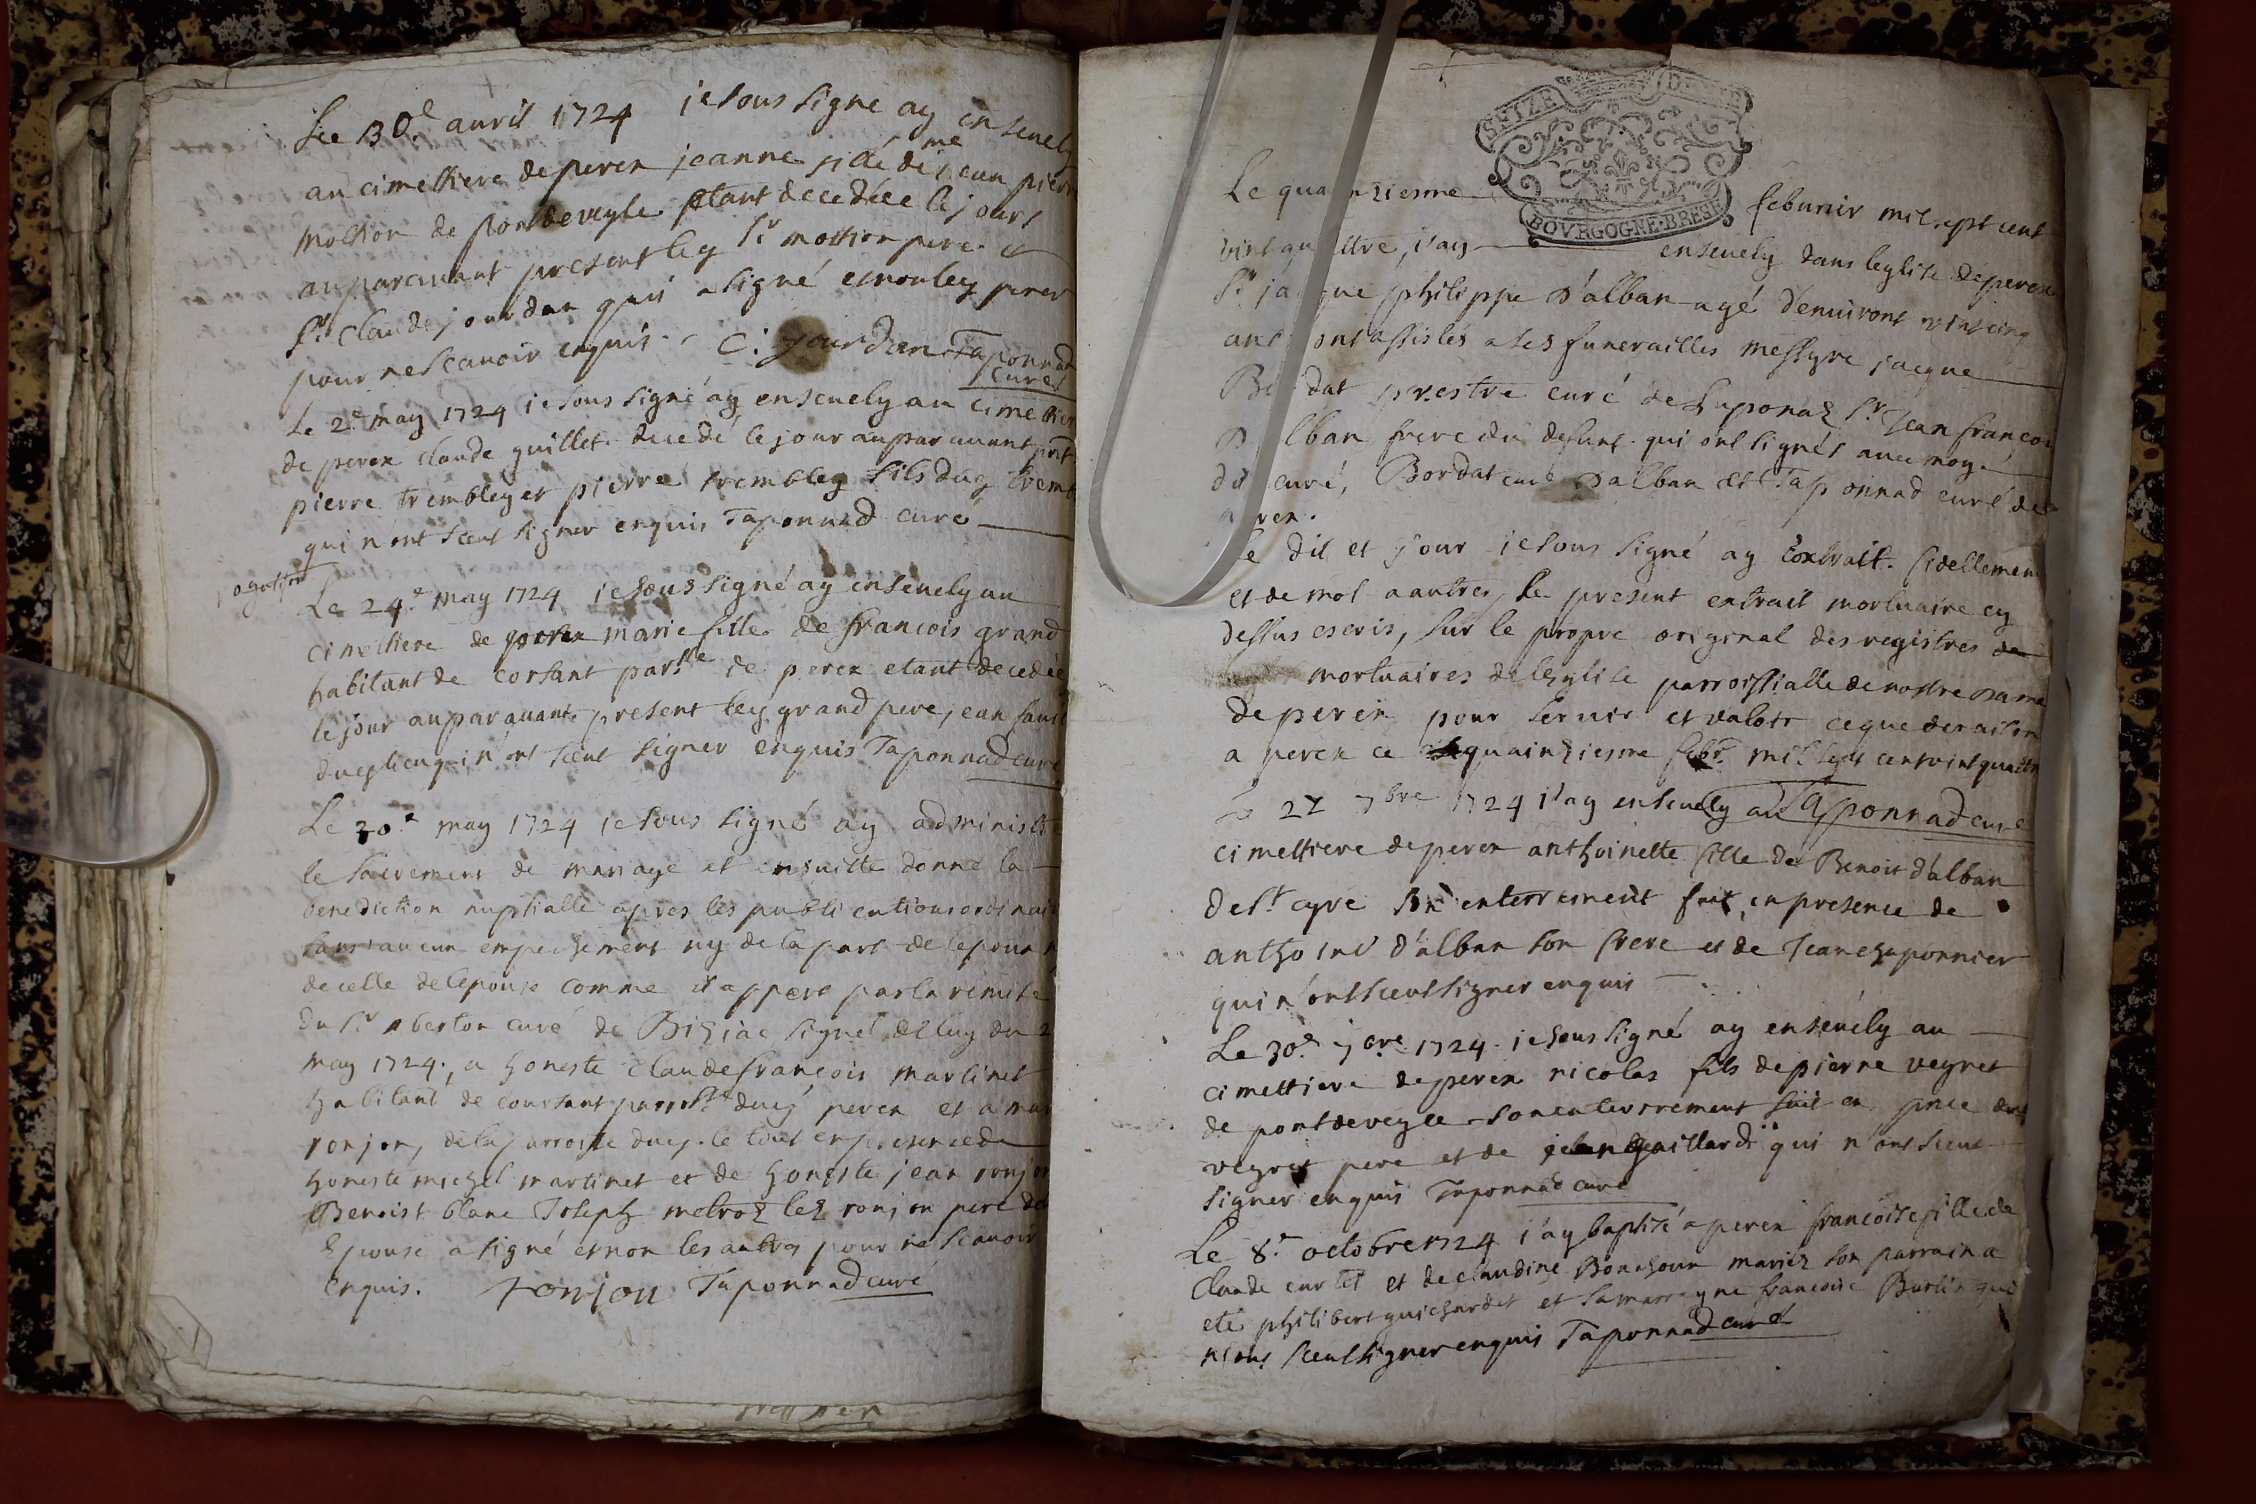 Le 30.e avril 1724 je sous signe ay ensevely
au cimettiere de perex jeanne fille de me jean pierre
mothon de pontdeveyle etant decedée le jours
auparavant present ley sr mothon pere et
sr. claude jourdan qui a signé et non ley perex
pour ne scavoir enquis. C. jourdan Taponnad
curé
Le 2.e may 1724 je sous signé ay ensevely au cimettier
de perex claude guillet decedé le jour auparavant pnt
pierre trembley et pierre trembley fils duy tremb
qui n'ont sceut signer enquis Taponnad curé
Le 24.e may 1724 je sous signé ay ensevely au
cimettiere de perex marie fille de francois grand
habitant de corsant parsse de perex etant decedée
le jour auparavant present ley grand pere, jean
duy lieu qui n'ont sceut signer enquis Taponnad curé
Le 30.e may 1724 je sous signé ay administré
le sacrement de mariage et ensuitte donné la
benediction nuptialle apres les publications ordinai
sans aucun empechement ny de la part de lepoux n
de celle de lepouse comme il appert par la remise
du sr aberton curé de Biziac signé de luy du 2
may 1724., a honeste claude francois martinet
habitant de coursant parroisse duy perex et a mar
ronjon, de la parroisse duy. le tout en presence de
honeste michel martinet et de honeste jean ronjon
Benoist blanc Joseph metroz lez ronjon pere de
Epouse a signé et non les autres pour ne scavoir
enquis. ronjon Taponnad curé
SEIZE DENIE
BOVRGOGNE·BRESSE
Le qua nziesme febvrier mil sept cent
vint qua ttre, j'ay ensevely dans leglise de perex
sr. ja que philippe d'alban agé d'environt vint cinq
ans ont assistés a ses funerailles messyre jacque
Bo dat prestre curé de Luponaz sr Jean francoi
d lban frere du defunt qui ont signés avec moy
dit curé, Bordat curé Dalban et Taponnad curé de
perex.
Le dit et jour je sous signé ay extrait fidellement
et de mot a autres, le present extrait mortuaire cy
dessus escris, sur le propre original des registres de
mortuaires de leglise parroissialle de nostre dame
de perex pour servir et valoir ce que de raison
a perex ce quainziesme febr. mil sept cent vint quattre
Taponnad curé
Le 27 7bre 1724 j'ay ensevely au
cimettiere de perex anthoinette fille de Benoit d'alban
de st. cyre son enterrement fait en presence de
anthoine d'alban son frere et de Jean chaponnier
qui n'ont sceut signer enquis
Le 30.e 7bre 1724. je sous signé ay ensevely au
cimettiere de perex nicolas fils de pierre veyret
de pontdeveyle son enterrement fait en pnce duy
veyret pere et de jean gaillard qui n'ont sceut
signer enquis Taponnad curé
Le 8.e octobre 1724 j'ay baptisé a perex francoise fille de
Claude curtet et de claudine Bonchour mariez son parrain a
eté philibert guichardet et sa marrayne francoise Burtin qui
n'ont sceut signer enquis Taponnad curé